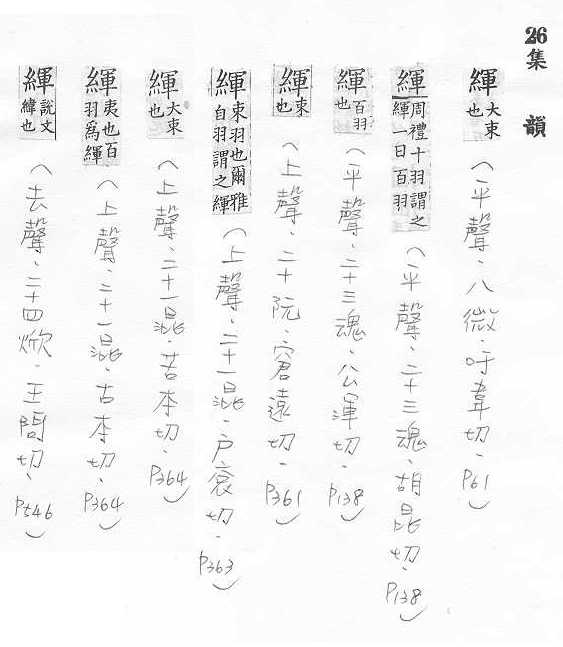 26集韻
緷 大束也(平聲、八微、吁韋切、P61)
緷 周禮十羽謂之緷一曰百羽(平聲、二十三魂、胡昆切、P138)
緷 百羽也(平聲、二十三魂、公渾切、P138)
緷 束也(上聲、二十阮、窘遠切、P361)
緷 束羽也爾雅百羽謂之緷(上聲、二十一混、戶袞切、P363)
緷 大束也(上聲、二十一混、苦本切、P364)
緷 夷也百羽爲緷(上聲、二十一混、古本切、P364)
緷 說文緯也(去聲、二十四焮、王問切、P546)